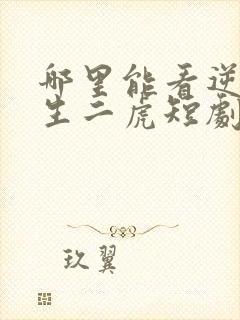 哪里能看逆
生二虎短劇
玖翼